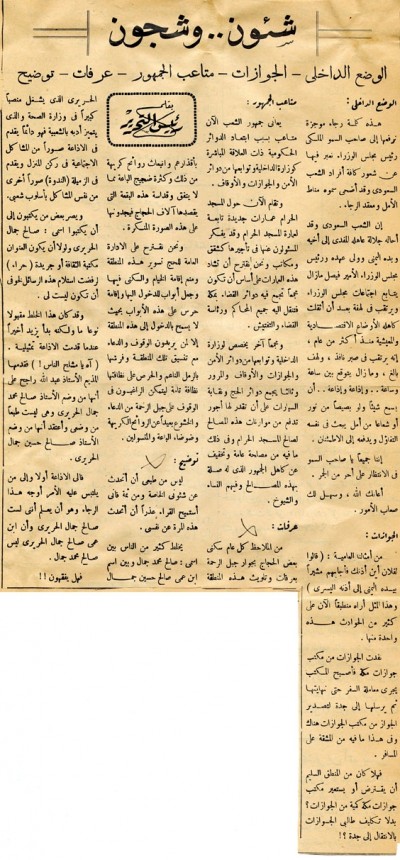 شئون.. وشجون
الوضع الداخلى - الجوازات - متاعب الجمهور - عرفات - توضيح
الوضع الداخلى :
هذه كلمة رجاء موجزة
نرفعها إلى صاحب السمو الملكى
رئيس مجلس الوزراء نعبر فيها
عن شعور كافة أفراد الشعب
السعودى وقد أضنى سموه مناط
الأمل ومعقد الرجاء .
إن الشعب السعودى وقد
أصاخه جلالة عاهله المفدى إلى أخيه
ويده اليمنى وولى عهده ورئيس
مجلس الوزراء الأمير فيصل مازال
يتابع اجتماعات مجلس الوزراء
ويترقب فى لهفة بعد أن أثقلت
كاهله الأوضاع الاقتصادية
والمعيشية منذ أكثر من عام ،
إنه يترقب فى صبر نافذ ، ولهف
بالغ ، وما زال يتوقع بين ساعة
وساعة . . وإذاعة وإذاعة . . أن
يسمع شيئاً ولو بصيصاً من نور
أو شعاعاً من أمل يبعث فى نفسه
التفاؤل ويدفعه إلى الاطمئنان .
إننا جميعاً يا صاحب السمو
فى الانتظار على أحر من الجمر .
أعانك الله ، وسهل لك
صعاب الأمور .
الجوازات :
من أمثالنا العامية : ( قالوا
لفلان أين أذنك فأجابهم مشيراً
بيده اليمنى إلى أذنه اليسرى )
وهذا المثل أراه منطبقاً الآن على
كثير من الحوادث هذه
واحدة منها .
غدت الجوازات من مكتب
جوازات مكة فأصبح المكتب
يجرى معاملة السفر حتى نهايتها
ثم يرسلها إلى جدة لتصدير
الجواز من مكتب الجوازات هناك
وفى هذا ما فيه من المشقة على
المسافر .
فهلا كان من المنطق السليم
أن يقترض أو يستعير مكتب
جوازات مكة كمية من الجوازات؟
بدلا تكليف طالبى الجوازات
بالانتقال إلى جدة ؟ !
متاعب الجمهور :
يعانى جمهور الشعب الآن
متاعب بسبب ابتعاد الدوائر
الحكومية ذات العلاقة المباشرة
كوزارة الداخلية وتوابعها من دوائر
الأمن والجوازات والأوقاف .
وتقام الآن حول المسجد
الحرام عمارات جديدة تابعة
لعمارة المسجد الحرام وقد يفكر
المسئولون عنها فى تأجيرها كشقق
ومكاتب ونحن نقترح أن تشاد
هذه العمارات على أساس أن تكون
مجمعاً تجمع فيه دوائر القضاء بمكة
فتنتقل إليه جميع المحاكم ورئاسة
القضاء والتفتيش .
ومجمعاً آخر يختص لوزارة
الداخلية وتوابعها من دوائر الأمن
والجوازات والأوقاف والمرور
وثالثا يجمع دوائر الحج ونقابة
السيارات على أن تقدر لها أجور
تدفع من موازنات هذه المصالح
لصالح المسجد الحرام وفى ذلك
ما فيه من مصلحة عامة وتخفيف
عن كاهل الجمهور الذى له صلة
بهذه المصالح وفيهم النساء
والشيوخ .
عرفات :
من الملاحظ كل عام سكنى
بعض الحجاج بجوار جبل الرحمة
بعرفات وتلويث هذه المنطقة
بقلم
رئيس التحرير
بأقذارهم وانبعاث روائح كريهة
من ذلك وكثرة ضجيج الباعة مما
لا يتفق وقداسة هذه البقعة التى
يقصدها آلاف الحجاج فيجدونها
على هذه الصورة المنكرة .
ونحن نقترح على الادارة
العامة للحج تسوير هذه المنطقة
ومنع إقامة الخيام والسكنى فيها
وجعل أبواب للدخول اليها وإقامة
حرس على هذه الأبواب بحيث
لا يسمح بالدخول إلى هذه المنطقة
إلا لمن يريدون الوقوف والدعاء
مع تنسيق تلك المنطقة وفرشها
بالرمل الناعم والحرص على نظافتها
نظافة تامة ليتمكن الراغبون فى
الوقوف على جبل الرحمة من الدعاء
والخشوع بعيداً عن الروائح الكريهة
وضوضاء الباعة والمتسولين .
توضيح :
ليس من طبعى أن أتحدث
عن شئونى الخاصة ومن ثمة فانى
أستميح القراء عذراً أن أتحدث
هذه المرة عن نفسى .
يخلط كثير من الناس بين
اسمى : صالح محمد جمال وبين اسم
ابن عمى صالح حسين جمال
الحريرى الذى يشغل منصباً
كبيراً فى وزارة الصحة والذى
يتميز أدبه بالشعبية فهو دائماً يقدم
فى الاذاعة صوراً من المشاكل
الاجتماعية فى ركن المنزل ويقدم
فى الزميلة (الندوة) صوراً أخرى
من نفس المشاكل بأسلوب شعبى.
ويصر بعض من يكتبون إلى
أن يكتبوا اسمى : صالح جمال
الحريرى ولولا أن يكون العنوان
مكتبة الثقافة أو جريدة ( حراء )
رفضت استلام هذه الرسائل لخوف
أن تكون ليست لى .
وقد كان هذا الخلط مقبولا
نوعا ما ولكنه بدأ يزيد أخيراً
عندما قدمت الاذاعة تمثيلية .
( آه يا مشلح الناس ! ) فقدمها
المذيع الأستاذ عبد الله راجح على
أنها من وضع الأستاذ صالح محمد
جمال الحريرى وهى ليست طبعاً
من وضعى وأعتقد أنها من وضع
الأستاذ صالح حسين جمال
الحريرى .
فالى الاذاعة أولا وإلى من
يلتبس عليه الأمر أوجه هذا
الرجاء وهو أن يعلم أننى لست
صالح جمال الحريرى وأن ابن
عمى صالح جمال الحريرى ليس
صالح محمد جمال .
فهل يفقهون !!